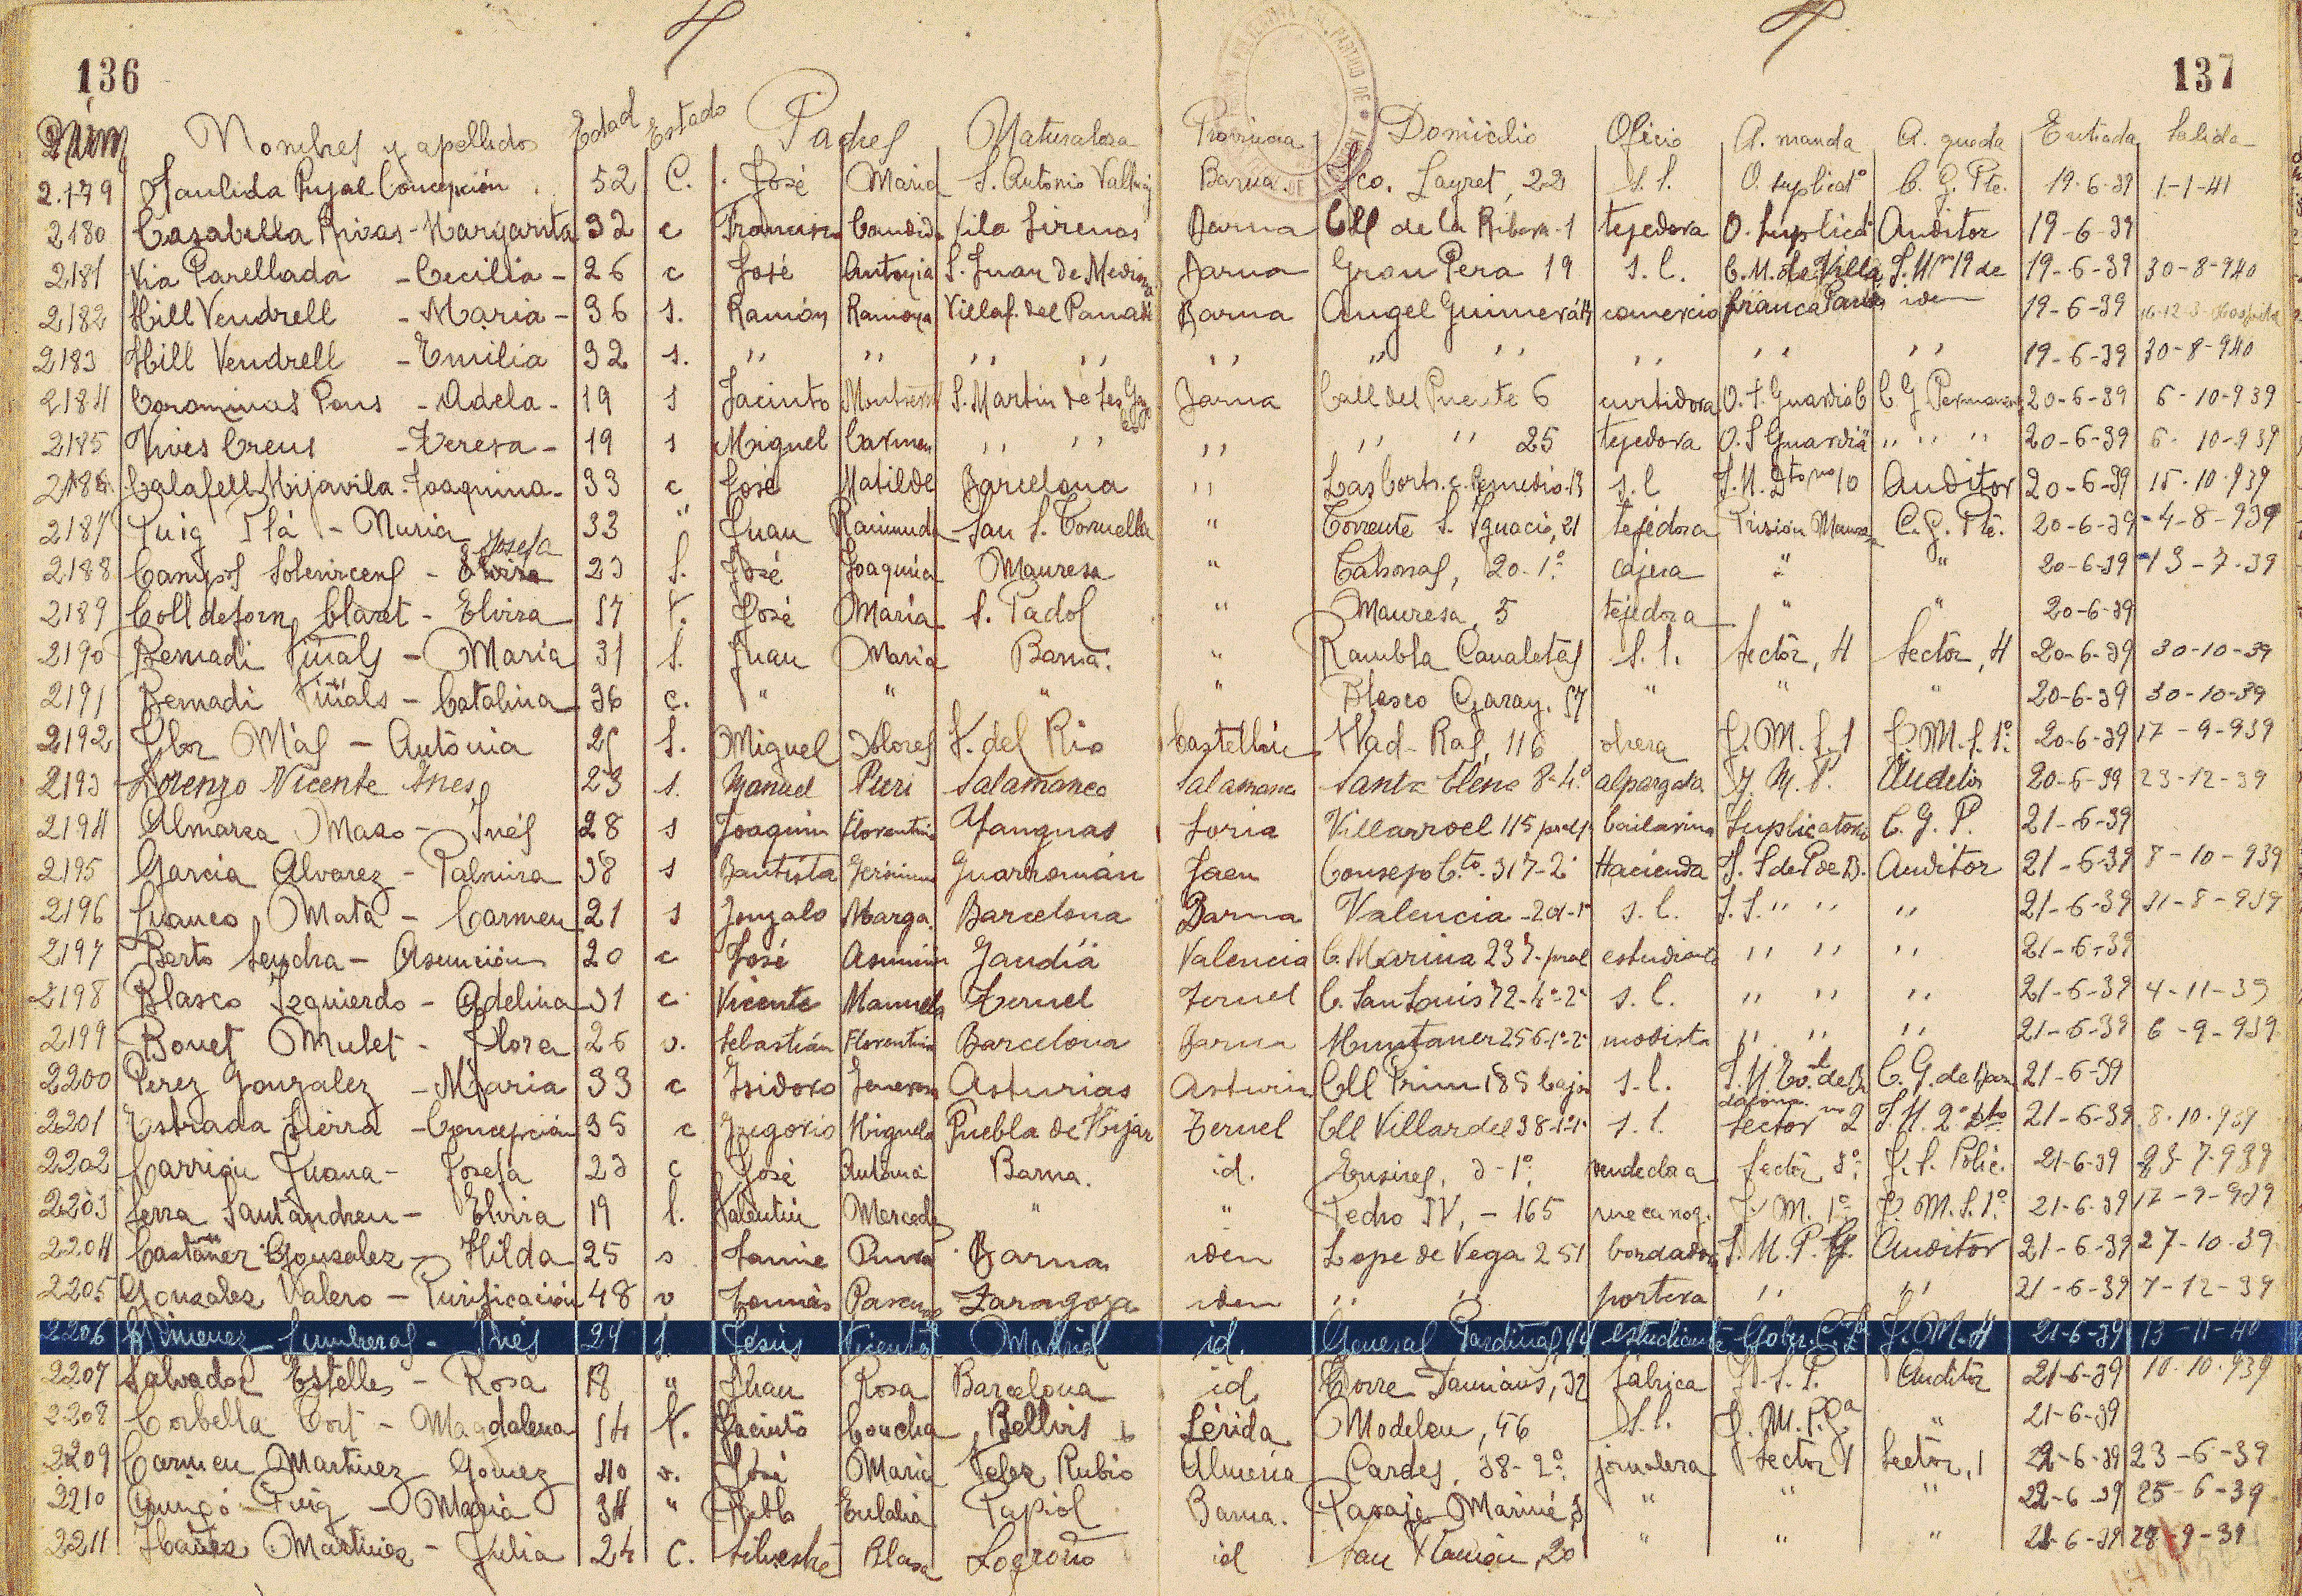 136
137
Núm Nombres y apellidos Edad Estado Padres Naturaleza Provincia Domicilio Oficio A. manda A. queda Entrada Salida
2.179 Saulida Pujal Concepción 52 C. José María S. Antonio Barna. Fco. Layret, 22 s. l. O. suplicatº C. G. Pte. 19-6-39 1-1-41
2180 Casabella Rivas - Margarita 32 c Francisco Candida Vila Sirenas Barna Cll de la Ribera-1 tejedora O. suplicatº Auditor 19-6-39
2181 Via Parellada - Cecilia - 26 c José Antonia S. Juan de Barna Grau Pera 19 s. l. C. M. de Villa 19-6-39 30-8-940
2182 Hill Vendrell - Maria - 36 s. Ramón Ramona Villaf. del Panadés Barna Angel Guimerá comercio franca iden 19-6-39
2183 Hill Vendrell - Emilia 32 s. " " " " " " " " " " 19-6-39 30-8-940
2184 Corominas Pons - Adela - 19 s Jacinto S. Martin de Barna Call del Puente 6 curtidora O. S. Guardia C G Permanen 20-6-39 6-10-939
2185 Vives Creus - Teresa - 19 s Miguel Carmen " " " " " 25 tejedora O. S Guardia " " " 20-6-39 6-10-939
2186 Calafell Mijavila - Joaquina - 33 c José Matilde Barcelona " Las Corts. c. Remedio-13 s. l J. M. Dto nº 10 Auditor 20-6-39 15-10-939
2187 Puig Plá - Nuria 33 " Juan Raimunda San S. Torruella " Torrente S. Ignacio, 21 tejedora Prisión Manresa C. G. Pte. 20-6-39 4-8-939
Josefa
2188 Campos Solervicens - Elvira 23 s. José Joaquina Manresa " 20-1º cajera " " 20-6-39 13-7-39
2189 Colldeforn Claret - Elvira 57 v. José María S. Padol " Manresa, 5 tejedora " " 20-6-39
2190 Bernadi Viñals - María 31 s. Juan María Barna. " Rambla Canaletas s. l. Sector, 4 Sector, 4 20-6-39 30-10-39
2191 Bernadi Viñals - Catalina 36 c. " " " " Blasco Garay, 57 " " " 20-6-39 30-10-39
2192 Flor Más - Antonia 25 s. Miguel Dolores F. del Rio Castellón Wad-Ras, 116 obrera J. M. S. 1 J. M. S. 1º 20-6-39 17-9-939
2193 Lorenzo Vicente Ines 23 s. Manuel Pieri Salamanca Salamanca Santa Elena 8-4º alpargata J. M. P. Auditor 20-6-39 23-12-39
2194 Almarza Mazo - Inés 28 s Joaquin Florentina Yanguas Soria Villarroel 115 pral bailarina Suplicatorio C. G. P. 21-6-39
2195 Garcia Alvarez - Palmira 38 s Bautista Guarromán Jaen Consejo Cto. 317-2º Hacienda J. S de P de B. Auditor 21-6-39 8-10-939
2196 Franco Mata - Carmen 21 s Gonzalo Marga. Barcelona Barna Valencia-201-1º s. l. J. S. " " " 21-6-39 31-8-939
2197 Berto Sendra - Asunción 20 c José Asunción Gandía Valencia C. Marina 237-pral estudiante " " " 21-6-39
2198 Blasco Izquierdo - Adelina 31 c Vicente Manuela Teruel Teruel C. San Louis 72-4º-2ª s. l. " " " 21-6-39 4-11-39
2199 Bonet Mulet - Flora 26 v. Sebastián Florentina Barcelona Barna Muntaner 256-1º-2ª modista " " " 21-6-39 6-9-939
2200 Perez Gonzalez - Maria 33 c Isidoro Generosa Asturias Asturias Cll Prim 185 bajos s. l. 21-6-39
2201 Estrada Sierra - Concepción 35 c Gregorio Miguela Puebla de Hijar Teruel Cll Villardel 38-1º-1ª s. l. Sector nº 2 J. M. 2º Dto 21-6-39 8-10-939
2202 Carrión Juana - Josefa 23 c José Antonia Barna. id. 3-1º vendedora Sector 3º J. S. Polic. 21-6-39 23-7-939
2203 Serra Santandreu - Elvira 19 s. Valentin Mercedes " " Pedro IV, - 165 mecanog. J M. 1º J. M. S. 1º 21-6-39 17-9-939
2204 Castañer Gonzalez - Hilda 25 s Jaime Pura Barna iden Lope de Vega 251 bordadora J. M. P. Auditor 21-6-39 27-10-39
2205 Gonzalez Valero - Purificación 48 v Tomás Zaragoza iden " " portera " " 21-6-39 7-12-39
2206 Jimenez Lumbreras - Inés 24 s. Jesús Vicenta Madrid id. General Pardiñas, 14 estudiante Gobr. C. J. M. 4 21-6-39 13-11-40
2207 Salvador Estelles - Rosa 18 " Juan Rosa Barcelona id. Torre Damians, 32 fábrica J. S. P. Auditor 21-6-39 10-10-939
2208 Corbella Cort - Magdalena 54 v. Jacinto Concha Bellvis Lérida Modelell, 46 s. l. J. M. P. 21-6-39
2209 Carmen Martinez Gomez 40 v. José María Velez Rubio Almería Cardes, 38-2º jornalera Sector 1 Sector, 1 22-6-39 23-6-39
2210 Puig - María 34 " Pablo Eulalia Papiol Barna. Pasaje Mariné, 3 " " " 22-6-39 25-6-39
2211 Ibañez Martinez - Julia 24 C. Silvestre Blasa Logroño id San Ramón, 20 " " " 21-6-39 28-9-39